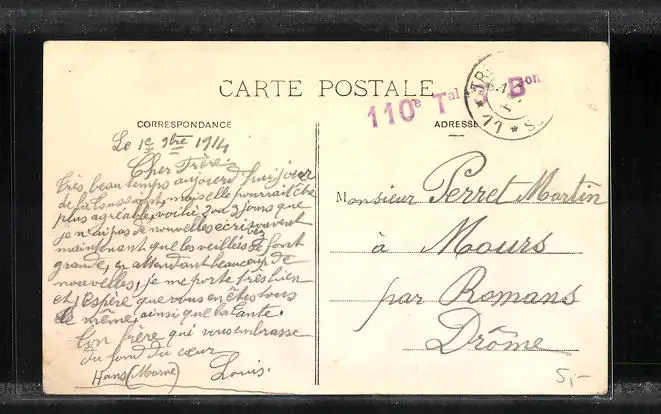 CARTE POSTALE
CORRESPONDANCE
ADRESSE
110e Tal 3e Bon
TR
11 * S
Le 1e 9bre 1914
Cher Frère.
Très beau temps aujourd'hui jour
de la Toussaint, mais elle pourrait être
plus agréable, voilà 2 ou 3 jours que
je n'ai pas de nouvelles écrivez souvent
maintenant que les veillées se font
grande, en attendant beaucoup de
nouvelles, je me porte très bien
et j'espère que vous en êtes tous
de même, ainsi que la tante.
Ton frère qui vous embrasse
du fond du cœur
Louis.
Hans (Marne)
Monsieur Perret Martin
à Mours
par Romans
Drôme
5,-